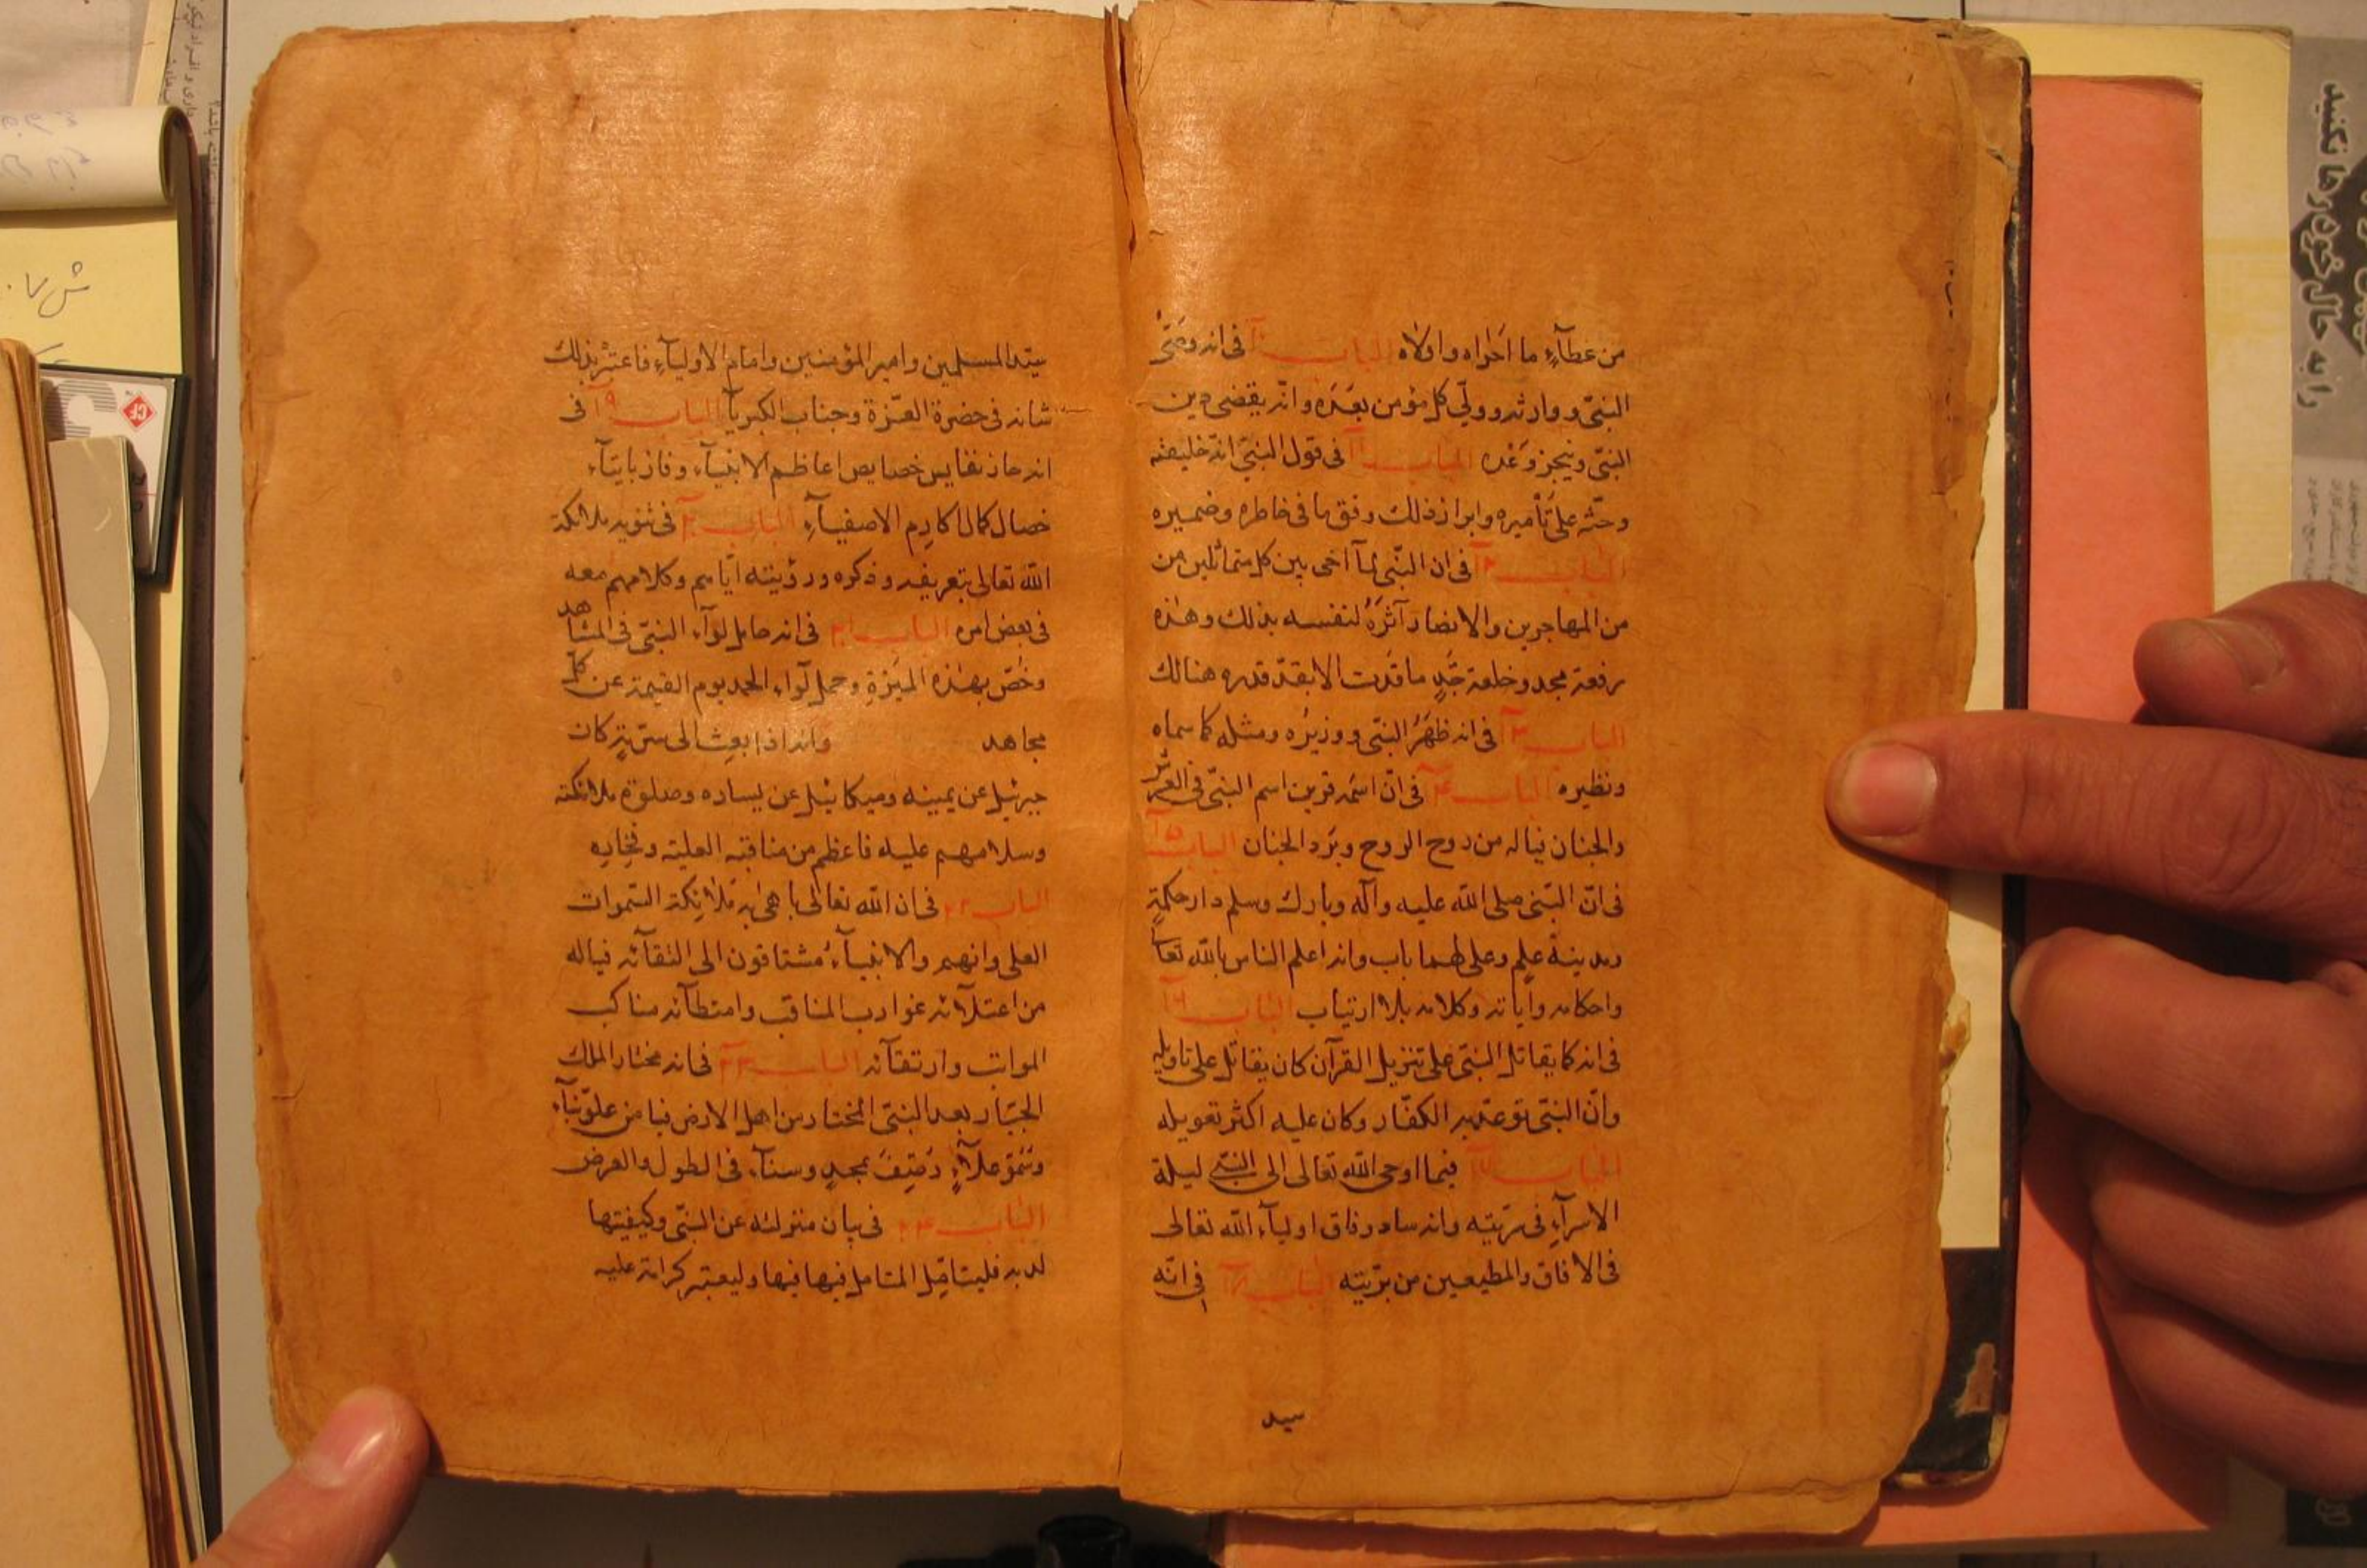 من عطآءٍ ما اَحْواه واَوْلاه الباب ١٠ فى انه وصَىّ
النبىّ ووارثه وولىّ كل مؤمن بعَدَه وانّه يقضى دين
النبىّ وينجز وَعْده الباب ١١ فى قول النبىّ انّه خليفته
وحثّه على تَأميره وابراز ذلك وفق ما فى خاطره وضميره
الباب ١٢ فى ان النّبى لمآ اخى بين كل متماثلين من
من المهاجرين والانصار آثَرَهُ لنفسه بذلك وهٰذه
رفعة مجد وخلعة جَدٍ ما قُدَت الا بقدّ قدره هنالك
الباب ١٣ فى انه ظَهَرُ النبّى ووزيرُه ومثله كما سماه
ونظيره الباب ١٤ فى انّ اسمَه قرين اسم النبّى فى العرش
والجنان فياله من روح الروح وبَرَد الجنان الباب ١٥
فى انّ النبّى صلى الله عليه وآله وبارك وسلم دار حكمةٍ
ومدينة علمٍ وعلى لهما باب وانه اعلم الناس بالله تعا
واحكامه وآياته وكلامه بلا ارتياب الباب ١٦
فى انه كما يقاتل النبّى على تنزيل القرآن كان يقاتل على تاويله
وانّ النبّى توعّد به الكفّار وكان عليه اكثر تعويله
الباب ١٧ فيما اوحى الله تعالى الى النبّى ليلة
الاسرآءِ فى مزيّته وانه ساد وفاق اوليآء الله تعالى
فى الافاق والمطيعين من بريّته الباب ١٨ فى انّه
سيد
سيّد المسلمين وامير المؤمنين وامام الاوليآءِ فاعتبر بذلك
شانه فى حضرة العزّة وجناب الكبريآ الباب ١٩ فى
انه حاز نفايس خصايص اعاظم الانبيآء وفاز باتيآء
خصال كمال اكارِم الاصفيآءِ الباب ٢٠ فى تنويه ملائكة
الله تعالى بتعريفه وذكره ورؤيته ايّاهم وكلامهم معه
فى بعض امره الباب ٢١ فى انه حامل لوآء النبىّ فى المشاهد
وخُصّ بهٰذه الميَزةِ وحمل لوآء الحمد يوم القيمة عن كلّ
مجاهد وانه اذا بعِث الى سَريّةٍ كان
جبرئيل عن يمينه وميكائيل عن يساره وصلوة ملائكة
وسلامهم عليه فاعظم من مناقبه العليّة وفخاره
الباب ٢٢ فى ان الله تعالى باهى به ملائكة السّموات
العلى وانهم والانبيآءُ مُشتاقون الى التقآئه فياله
من اعتلآئه غوارب المناقب وامتطآئه مناكب
المراتب وارتقآئه الباب ٢٣ فى انه مختار الملك
الجبّار بعد النبّى المختار من اهل الارض فيا من علوّ نبآءٍ
وسُمّو علآءٍ رُصِفَ بمجدٍ وسنآء فى الطول والعرض
الباب ٢٤ فى بيان منزلته عن النبّى وكيفيتها
لديه فليتامّل المتامل فيها فيها وليعتبر كرامته عليه